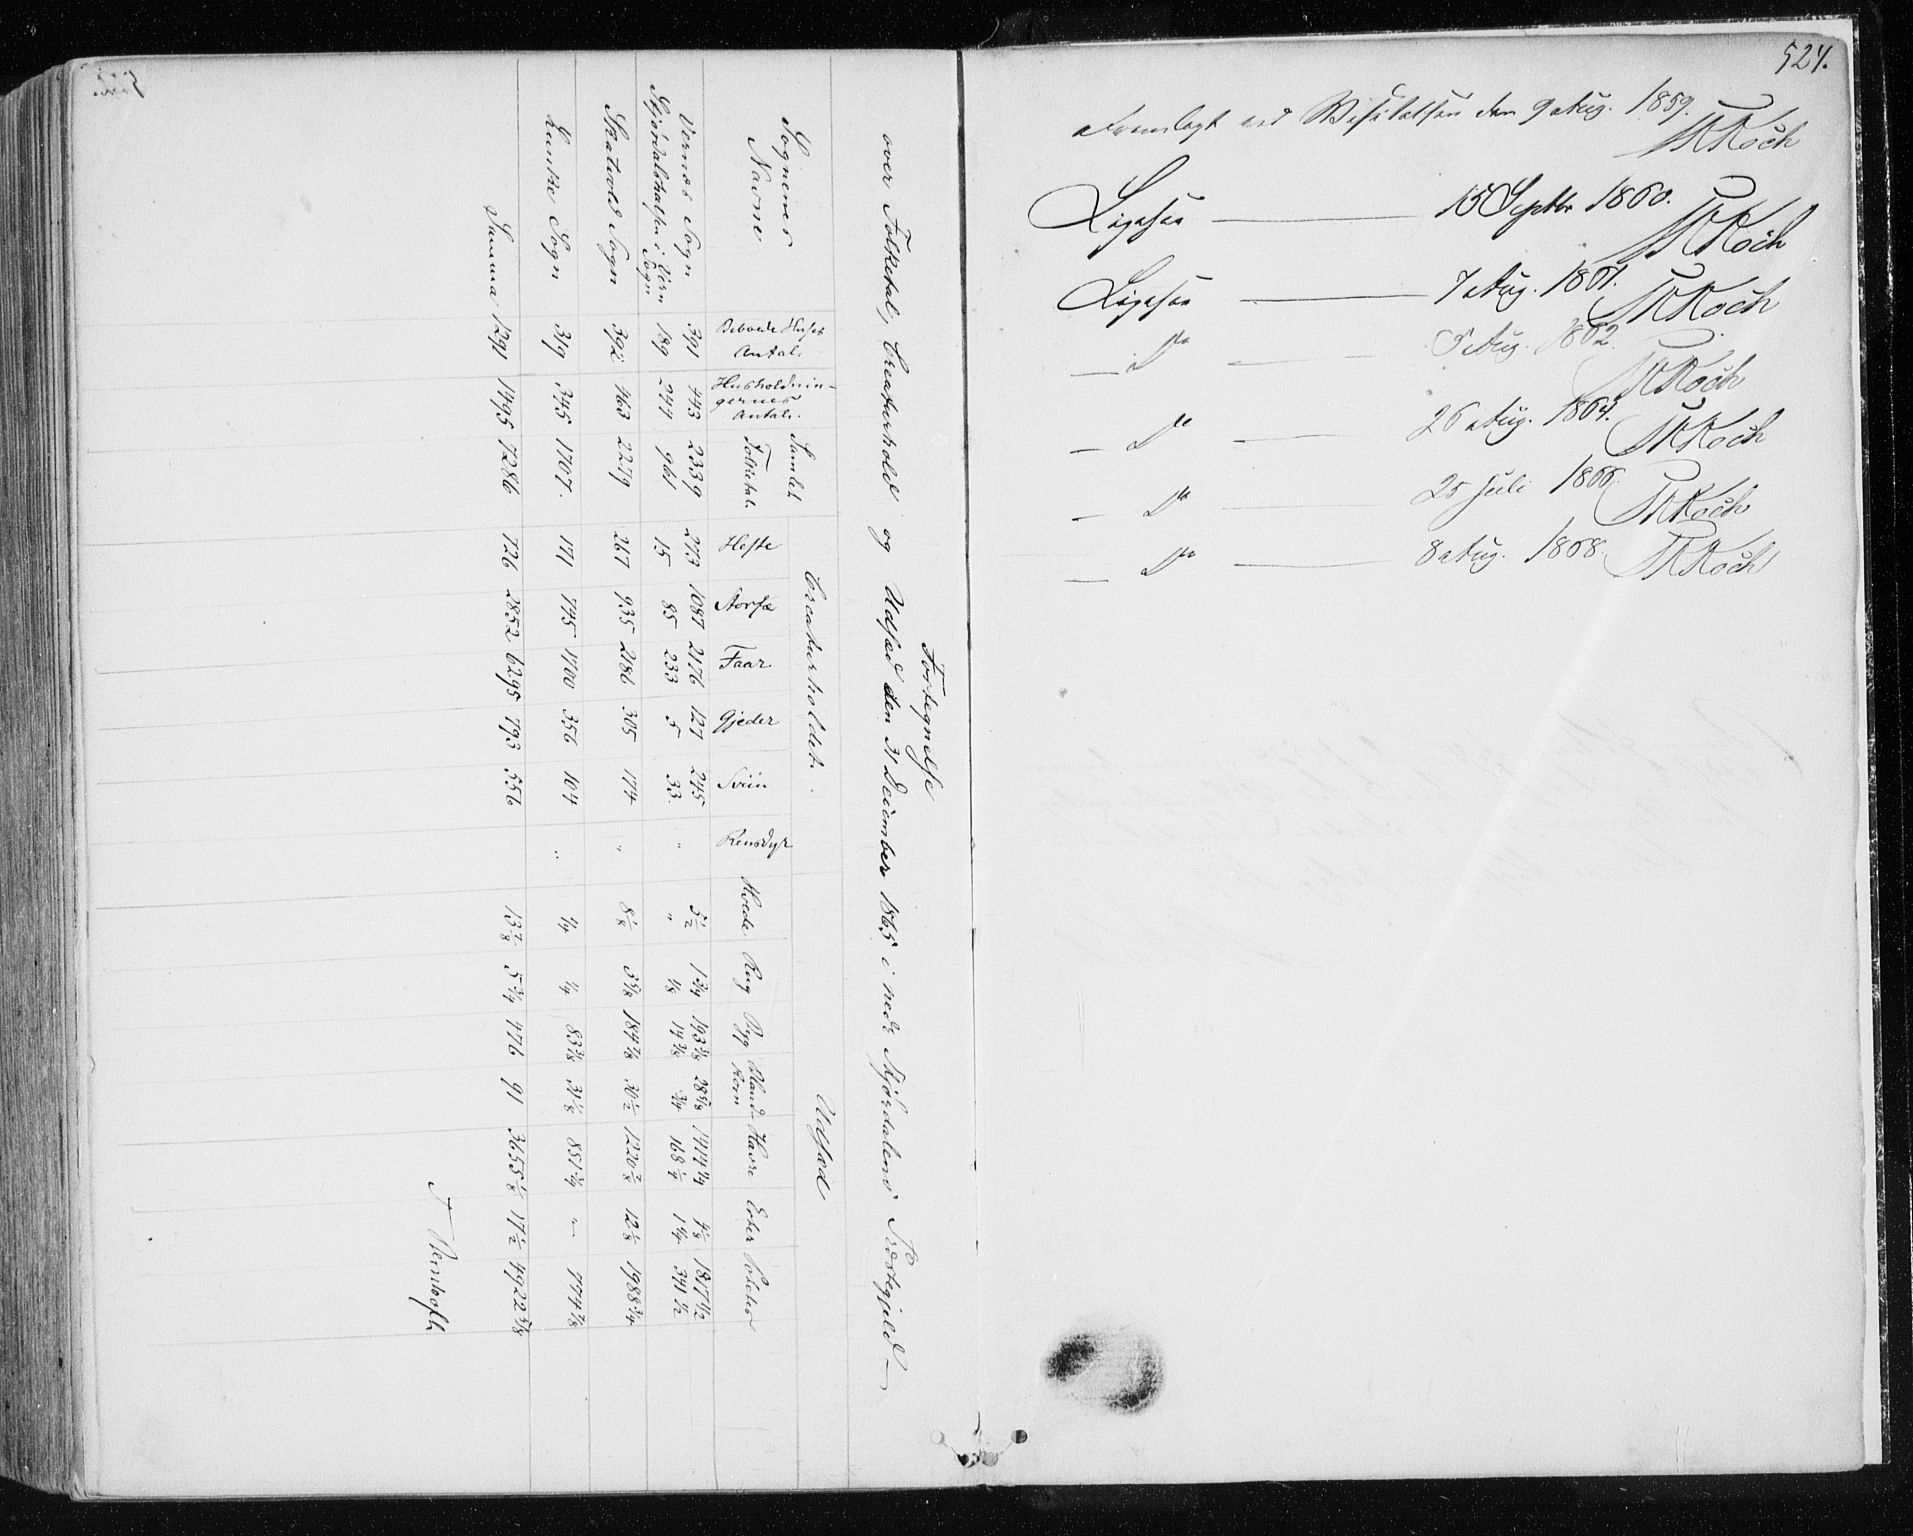 Fortegnelse
over Folketal, Creaturhold og Udsæd den 31 December 1865 i nedr Stjørdalens Præstegjeld
Sognenes Navne | Beboede Huses Antal. | Husholdningernes Antal. | Samlet Folketal. | Creaturholdet. | Udsæd
Heste | Storfæ | Faar | Gjeder | Sviin | Rensdyr | Hvede | Rug | Byg | Blandkorn | Havre | Erter | Poteter
Vernæs Sogn 391 443 2339 273 1087 2176 127 245 " 5½ 1¾ 193⅜ 28⅝ 1414¼ 4⅛ 1817½
Stjørdalshalsen i Vern Sogn 189 244 961 15 85 233 5 33 " " ⅛ 14⅜ ¾ 168¼ 1¼ 341½
Skatvold Sogn 392 463 2279 267 935 2186 305 174 " 8⅛ 3⅝ 184⅞ 30½ 1220⅞ 12⅛ 1988¾
Lunke Sogn 319 345 1707. 171 745 1700 356 104 " ¼ ¼ 83⅜ 31⅛ 851¾ " 774⅞
Summa 1291 1495 7286 726 2852 6295 793 556 13⅞ 5¾ 476 91 3655⅛ 17½ 4922⅝
524.
Fremlagt ved Visitatsen den 9 Aug. 1859. Koch
Ligesaa 15 Septbr 1860. Koch
Ligesaa 7 Aug. 1861. Koch
Do Aug. 1862. Koch
Do 26 Aug. 1864. Koch
Do 25 Juli 1866. Koch
Do 8 Aug. 1868. Koch